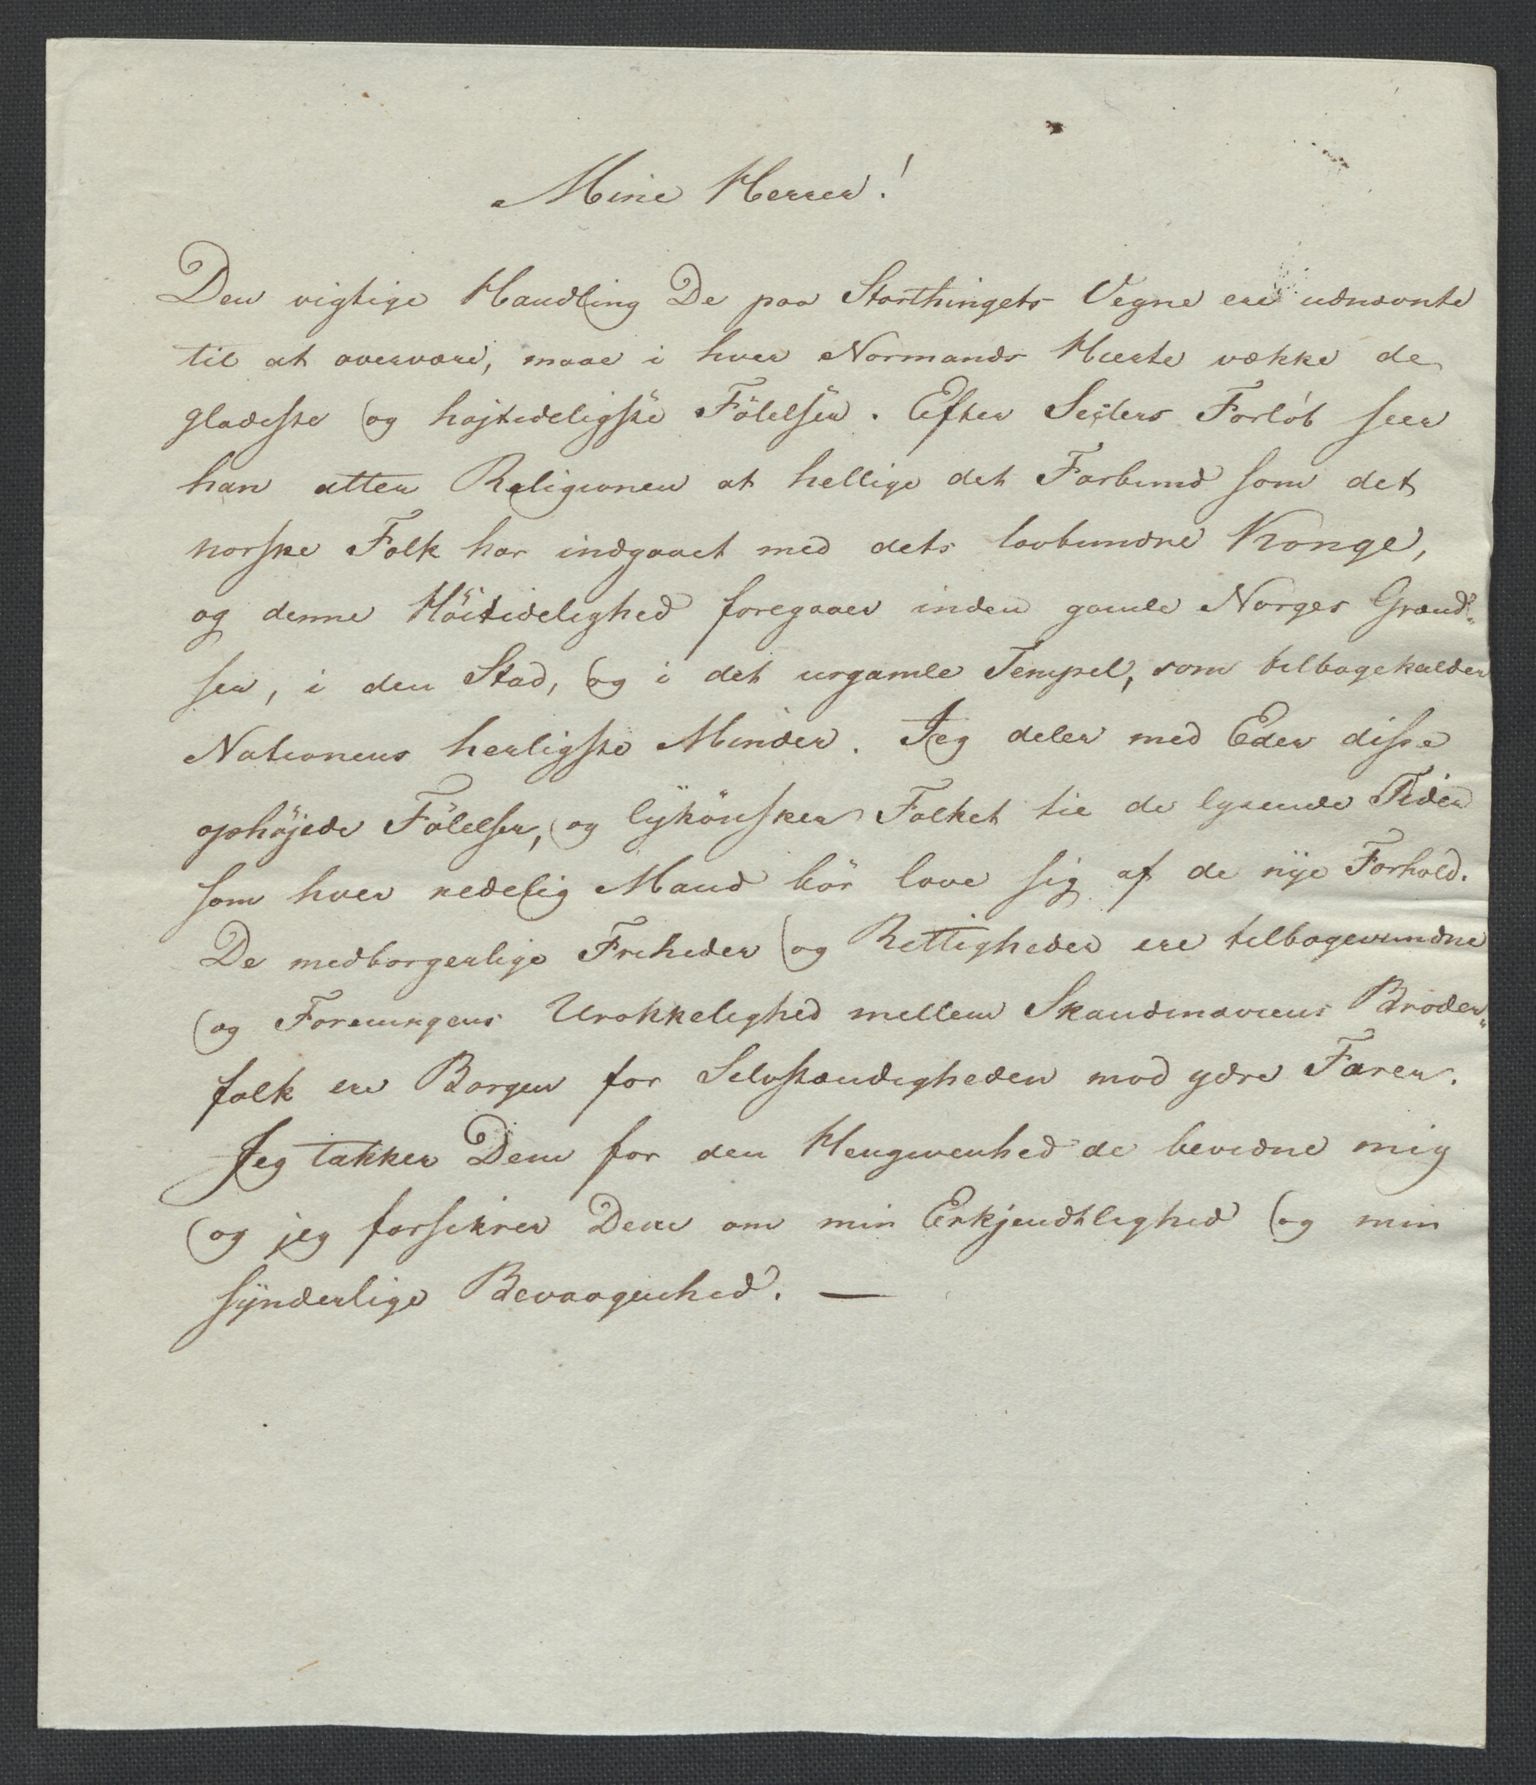 Mine Herrer!
Den vigtige Handling De paa Storthingets Vegne ere udnævnte
til at overvære, maae i hver Normands Hierte vække de
gladeste og højtideligste Fölelser. Efter Seclers Forlöb seer
han atter Religionen at hellige det Forbund som det
norske Folk har indgaaet med dets lovbundne Konge,
og denne Höitidelighed foregaaer inden gamle Norges Grænd-
ser, i den Stad, og i det urgamle Tempel, som tilbagekalder
Nationens herligste Minder. Jeg deler med Eder disse
ophöjede Fölelser, og lykönsker Folket til de lysende Tider
som hver redelig Mand bör love sig af de nye Forhold.
De medborgerlige Friheder og Rettigheder ere tilbagevundne
og Foreningens Urokkelighed mellem Skandinaviens Broder-
folk er Borgen for Selvstændigheden mod ydre Farer.
Jeg takker Dem for den Hengivenhed de bevidne mig
og jeg forsikrer Dem om min Erkjendtlighed og min
synderlige Bevaagenhed. —